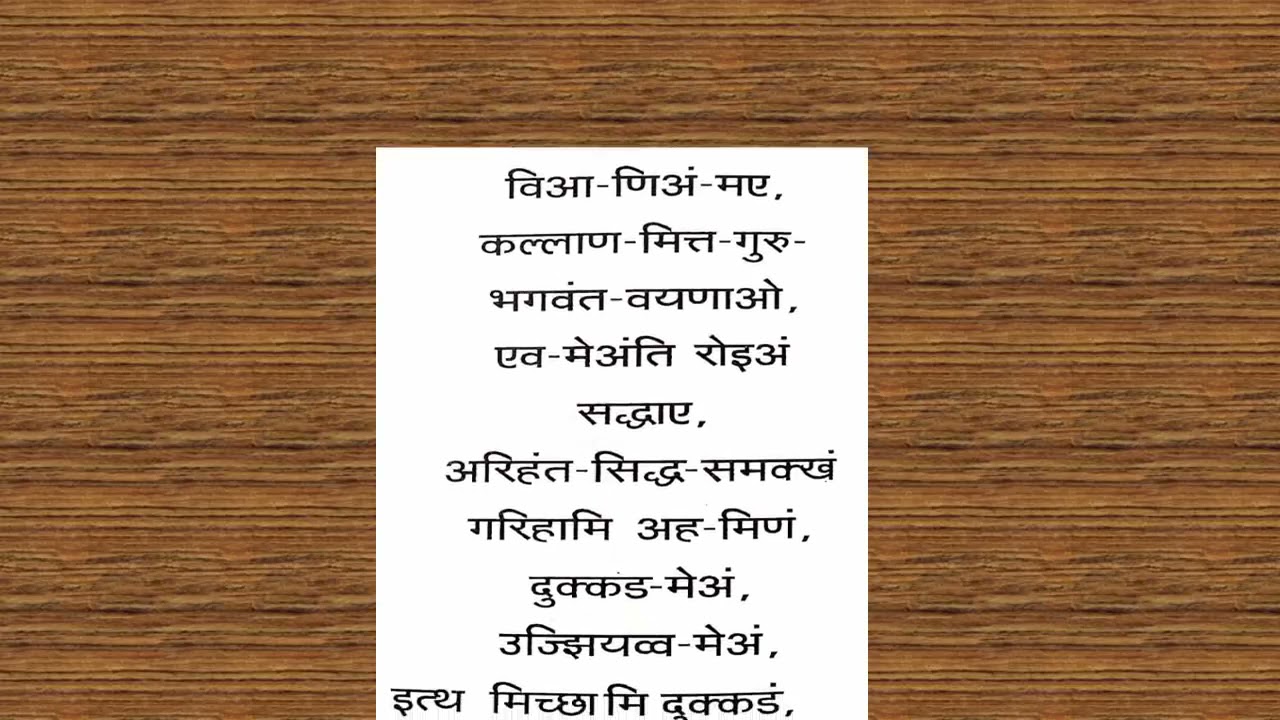 विआ-णिअं-मए,
कल्लाण-मित्त-गुरु-
भगवंत-वयणाओ,
एव-मेअंति रोइअं
सद्धाए,
अरिहंत-सिद्ध-समक्खं
गरिहामि अह-मिणं,
दुक्कड-मेअं,
उज्झियव्व-मेअं,
इत्थ मिच्छामि दुक्कडं,